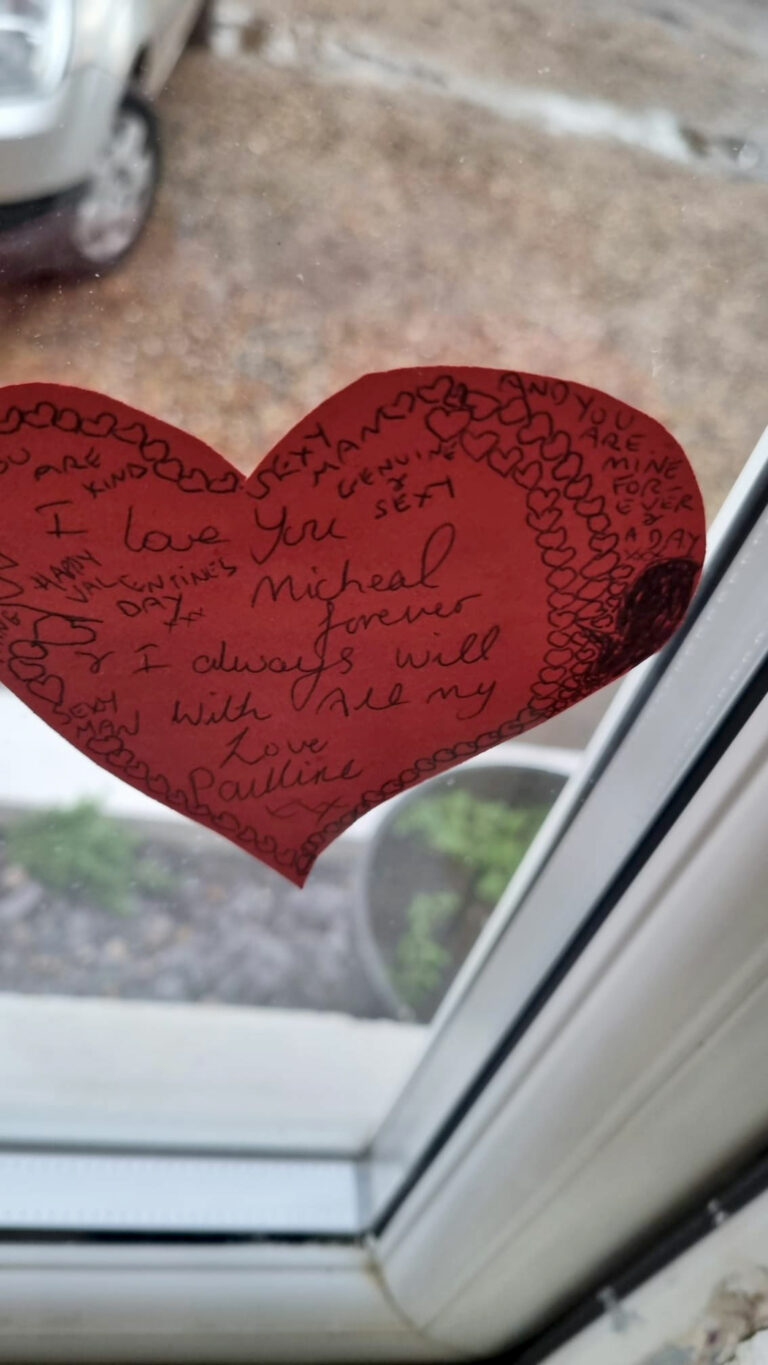 AND YOU
ARE
MINE
FOR
EVER
&
A DAY
xxx
SEXY
MAN
GENUINE
&
SEXY
ARE
KIND
I love You
HAPPY
VALENTINES
DAY
xx
Micheal
forever
& I always will
With All my
Love
Paulline
xxx
SEXY
MAN